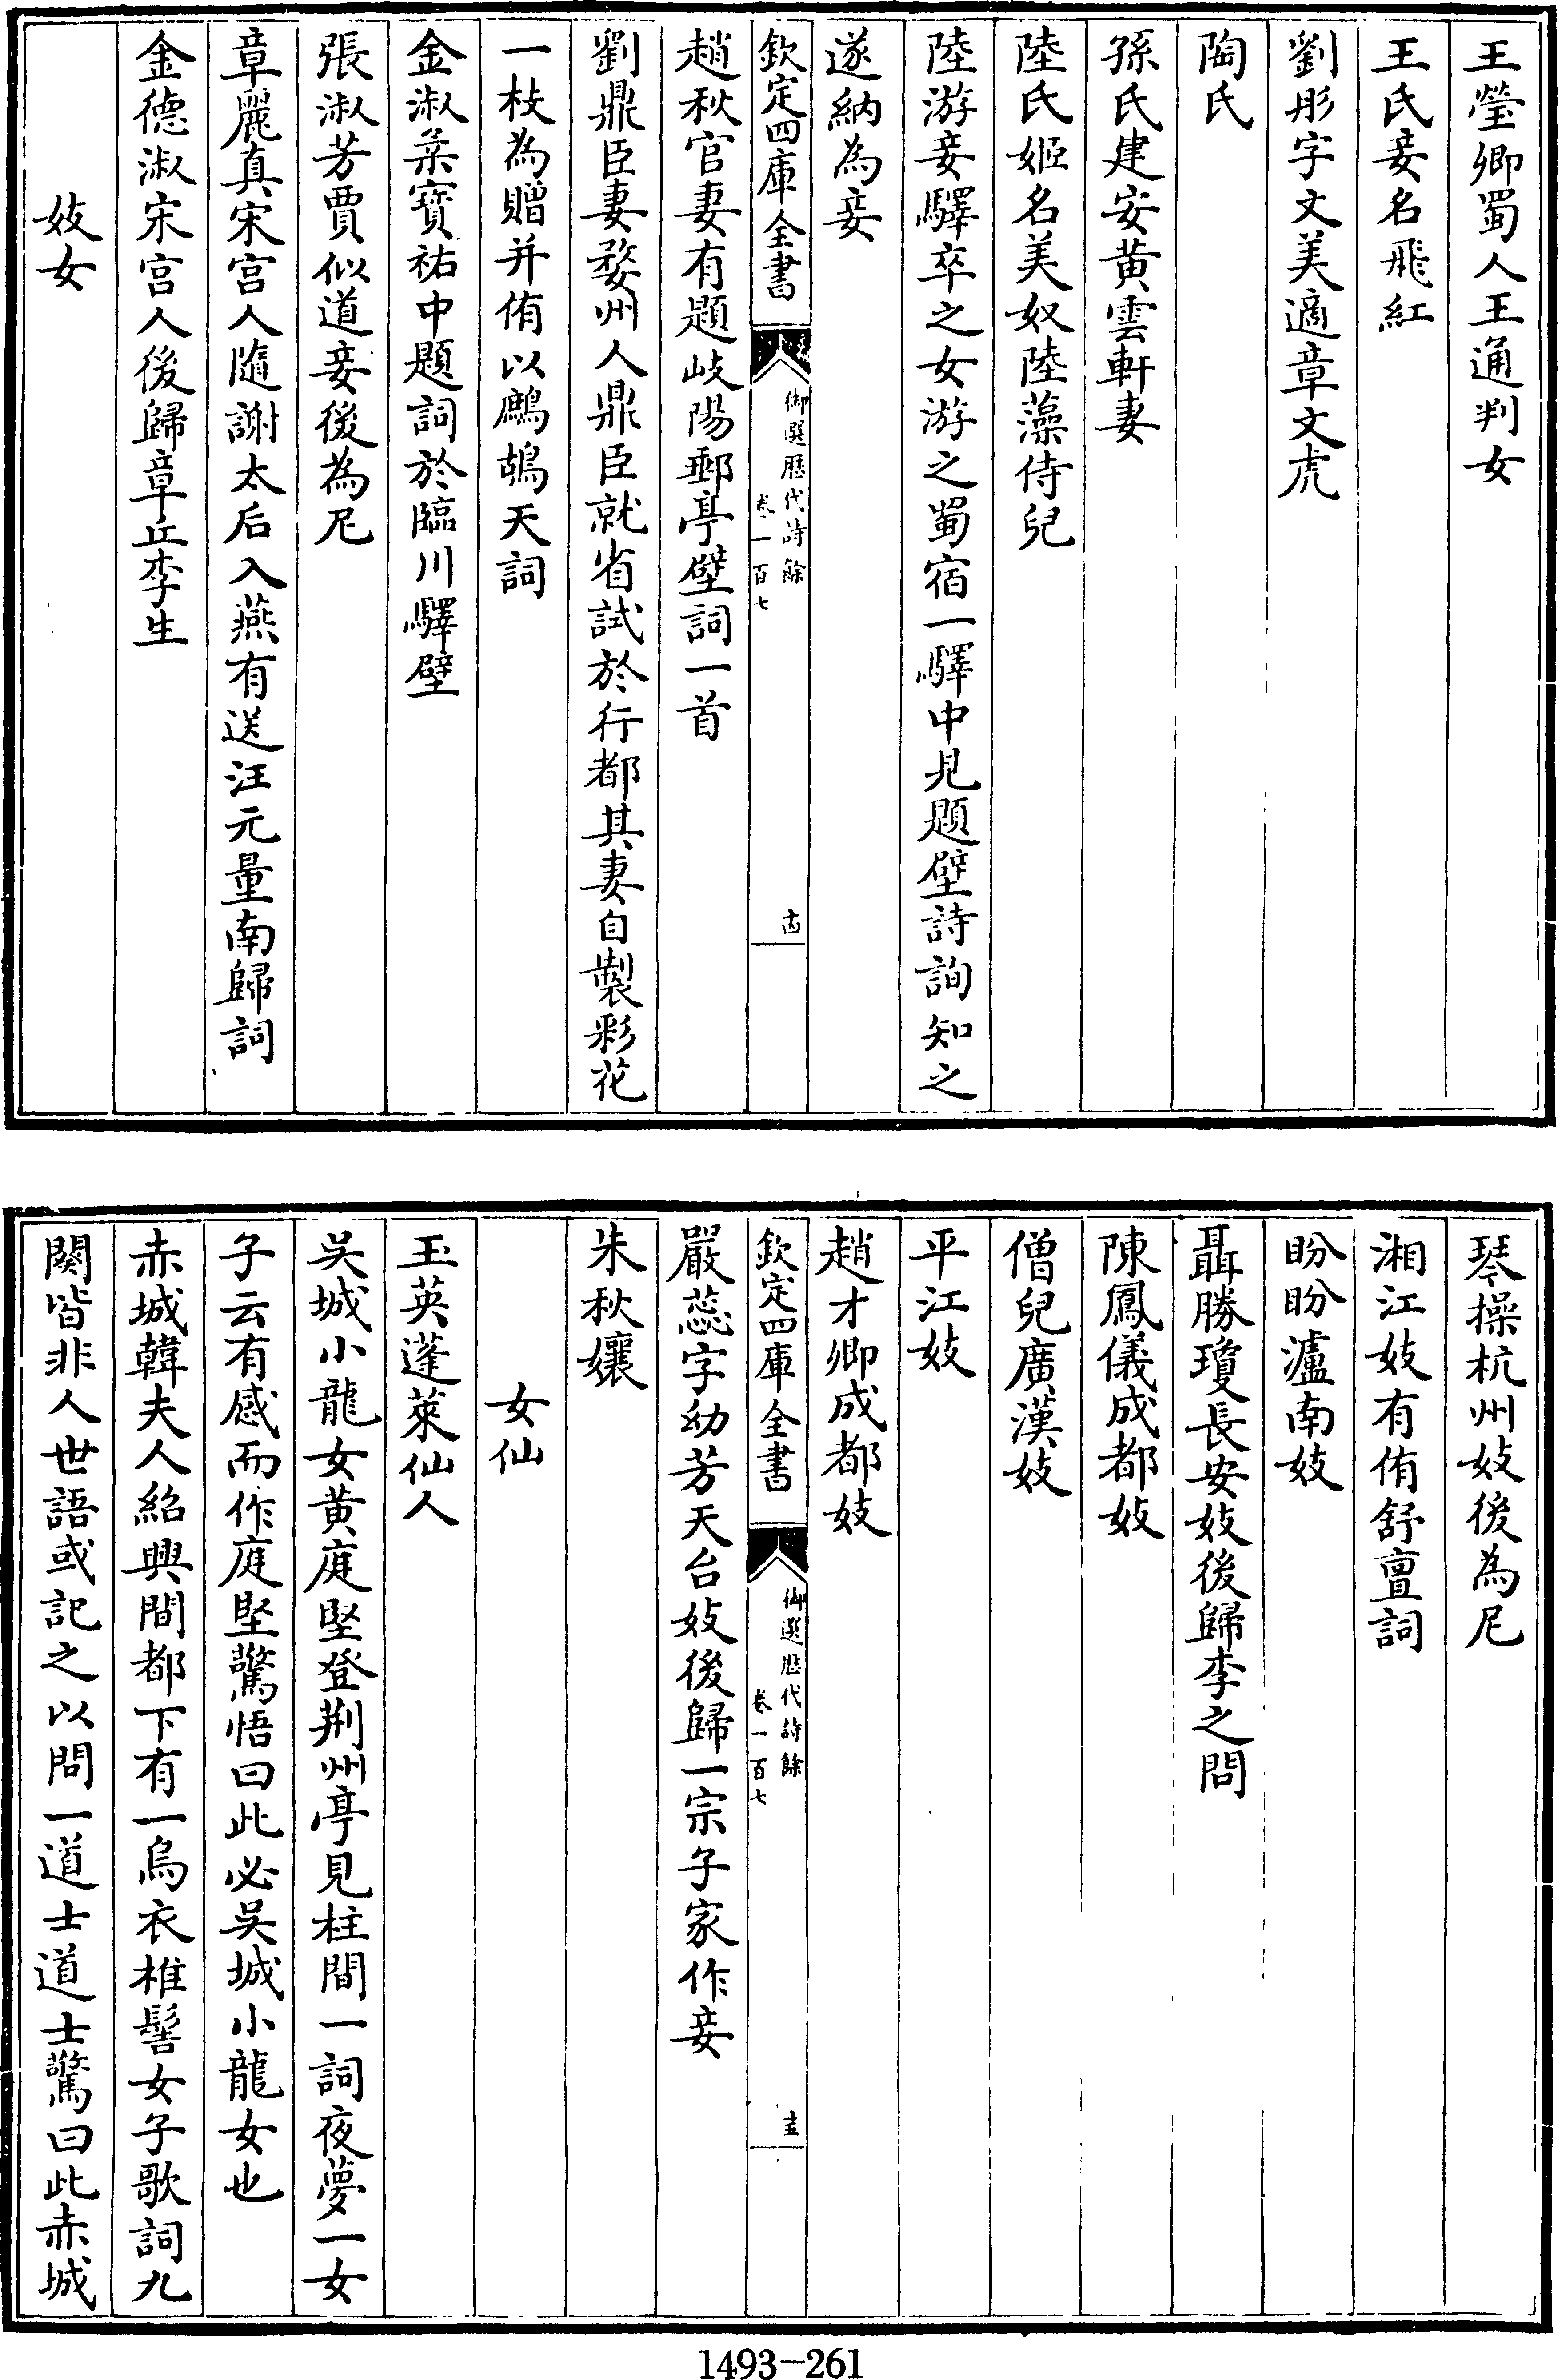 王瑩卿蜀人王通判女
王氏妾名飛紅
劉彤字文美適章文虎
陶氏
孫氏建安黄雲軒妻
陸氏姬名美奴陸藻侍兒
陸游妾驛卒之女游之蜀宿一驛中見題壁詩詢知之
遂納為妾
欽定四庫全書
御選歷代詩餘
卷一百七
十四
趙秋官妻有題岐陽郵亭壁詞一首
劉鼎臣妻婺州人鼎臣就省試於行都其妻自製彩花
一枝為贈并侑以鷓鴣天詞
金淑柔寳祐中題詞於臨川驛壁
張淑芳賈似道妾後為尼
章麗真宋宫人隨謝太后入燕有送汪元量南歸詞
金德淑宋宫人後歸章丘李生
妓女
琴操杭州妓後為尼
湘江妓有侑舒亶詞
盼盼瀘南妓
聶勝瓊長安妓後歸李之問
陳鳳儀成都妓
僧兒廣漢妓
平江妓
趙才卿成都妓
欽定四庫全書
御選歷代詩餘
卷一百七
十五
嚴蕊字幼芳天台妓後歸一宗子家作妾
朱秋孃
女仙
玉英蓬萊仙人
吳城小龍女黄庭堅登荆州亭見柱間一詞夜夢一女
子云有感而作庭堅驚悟曰此必吳城小龍女也
赤城韓夫人紹興間都下有一烏衣椎髻女子歌詞九
闋皆非人世語或記之以問一道士道士驚曰此赤城
1493-261